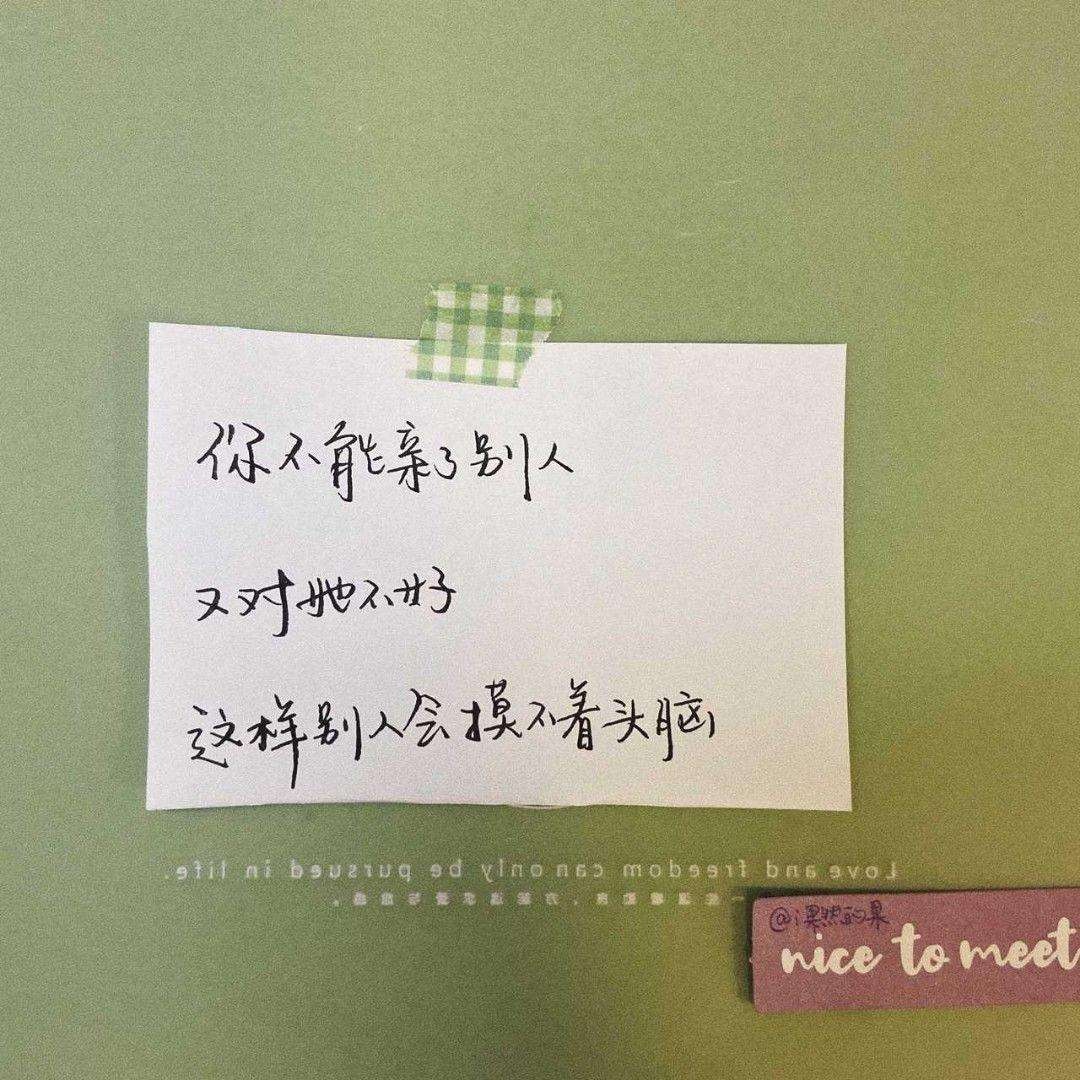 你不能亲了别人
又对她不好
这样别人会摸不着头脑
Love and freedom can only be pursued in life.
@i果然的果
nice to meet